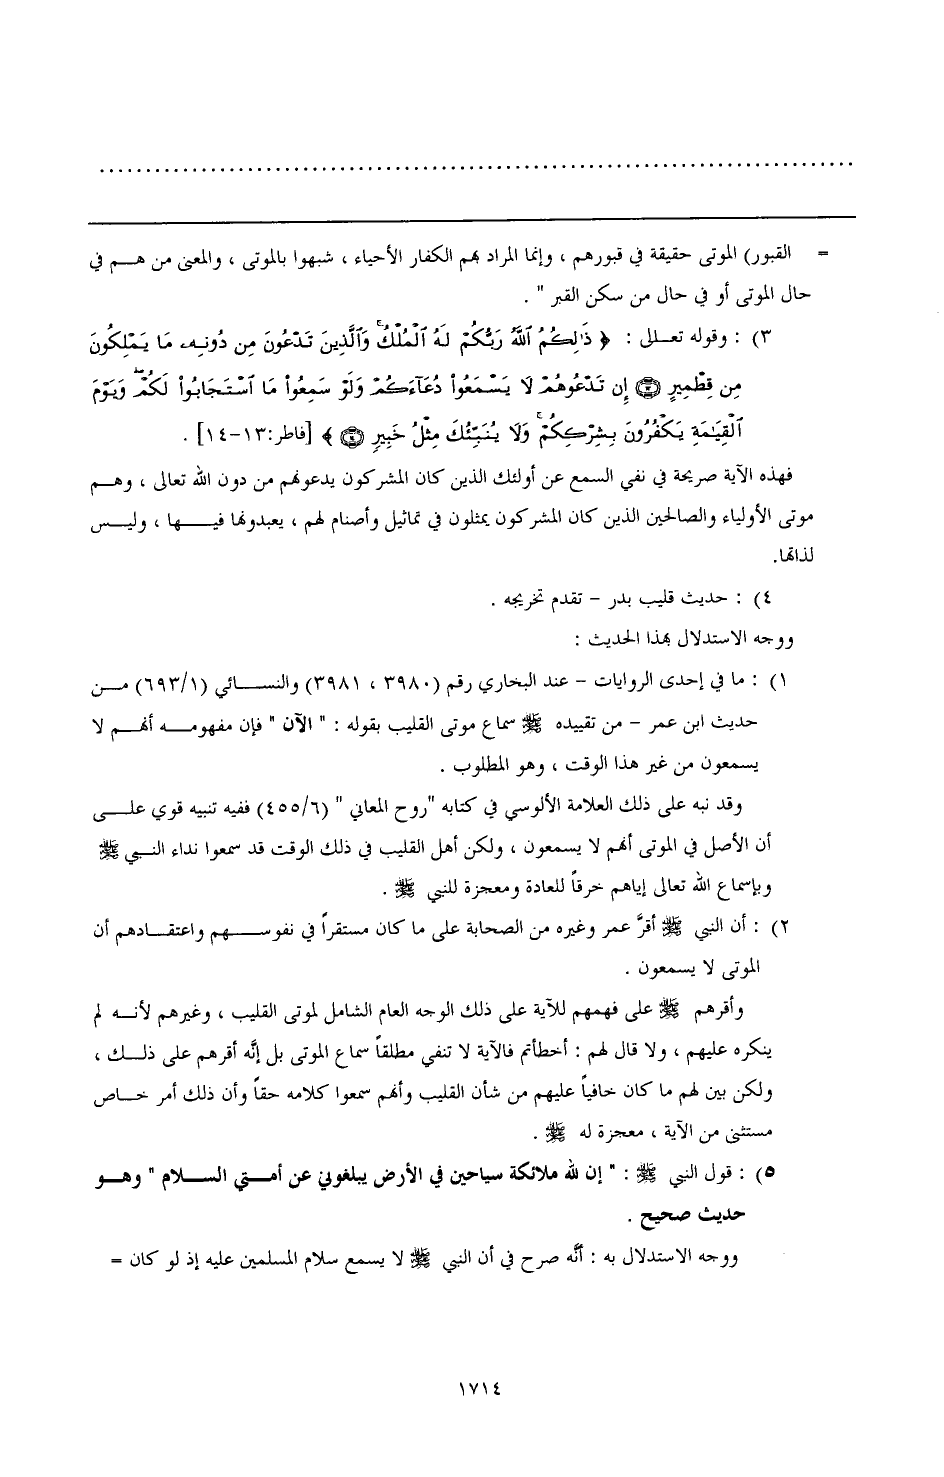 = القبور) الموتى حقيقة في قبورهم ، وإنما المراد بهم الكفار الأحياء ، شبهوا بالموتى ، والمعنى من هـم في
حال الموتى أو في حال من سكن القبر " .
٣) : وقوله تعـالى : ﴿ ذَٰلِكُمُ ٱللَّهُ رَبُّكُمْ لَهُ ٱلْمُلْكُ ۚ وَٱلَّذِينَ تَدْعُونَ مِن دُونِهِۦ مَا يَمْلِكُونَ
مِن قِطْمِيرٍ ۝١٣ إِن تَدْعُوهُمْ لَا يَسْمَعُوا۟ دُعَآءَكُمْ وَلَوْ سَمِعُوا۟ مَا ٱسْتَجَابُوا۟ لَكُمْ ۖ وَيَوْمَ
ٱلْقِيَـٰمَةِ يَكْفُرُونَ بِشِرْكِكُمْ ۚ وَلَا يُنَبِّئُكَ مِثْلُ خَبِيرٍ ۝١٤ ﴾ [فاطر:١٣-١٤] .
فهذه الآية صريحة في نفي السمع عن أولئك الذين كان المشركون يدعونهم من دون الله تعالى ، وهـم
موتى الأولياء والصالحين الذين كان المشركون يمثلون في تماثيل وأصنام لهم ، يعبدونها فيـها ، وليـس
لذاتها.
٤) : حديث قليب بدر – تقدم تخريجه .
ووجه الاستدلال بهذا الحديث :
١) : ما في إحدى الروايات – عند البخاري رقم (٣٩٨٠ ، ٣٩٨١) والنسـائي (٦٩٣/١) مـن
حديث ابن عمر – من تقييده ﷺ سماع موتى القليب بقوله : " الآن " فإن مفهومـه أنهـم لا
يسمعون من غير هذا الوقت ، وهو المطلوب .
وقد نبه على ذلك العلامة الألوسي في كتابه "روح المعاني " (٤٥٥/٦) ففيه تنبيه قوي علـى
أن الأصل في الموتى أنهم لا يسمعون ، ولكن أهل القليب في ذلك الوقت قد سمعوا نداء النـبي ﷺ
وبإسماع الله تعالى إياهم خرقاً للعادة ومعجزة للنبي ﷺ .
٢) : أن النبي ﷺ أقرَّ عمر وغيره من الصحابة على ما كان مستقراً في نفوسـهم واعتقـادهم أن
الموتى لا يسمعون .
وأقرهم ﷺ على فهمهم للآية على ذلك الوجه العام الشامل لموتى القليب ، وغيرهم لأنـه لم
ينكره عليهم ، ولا قال لهم : أخطأتم فالآية لا تنفي مطلقاً سماع الموتى بل إنَّه أقرهم على ذلـك ،
ولكن بين لهم ما كان خافياً عليهم من شأن القليب وأنهم سمعوا كلامه حقاً وأن ذلك أمر خـاص
مستثنى من الآية ، معجزة له ﷺ .
٥) : قول النبي ﷺ : " إن لله ملائكة سياحين في الأرض يبلغوني عن أمـتي السـلام " وهـو
حديث صحيح .
ووجه الاستدلال به : أنَّه صرح في أن النبي ﷺ لا يسمع سلام المسلمين عليه إذ لو كان =
١٧١٤